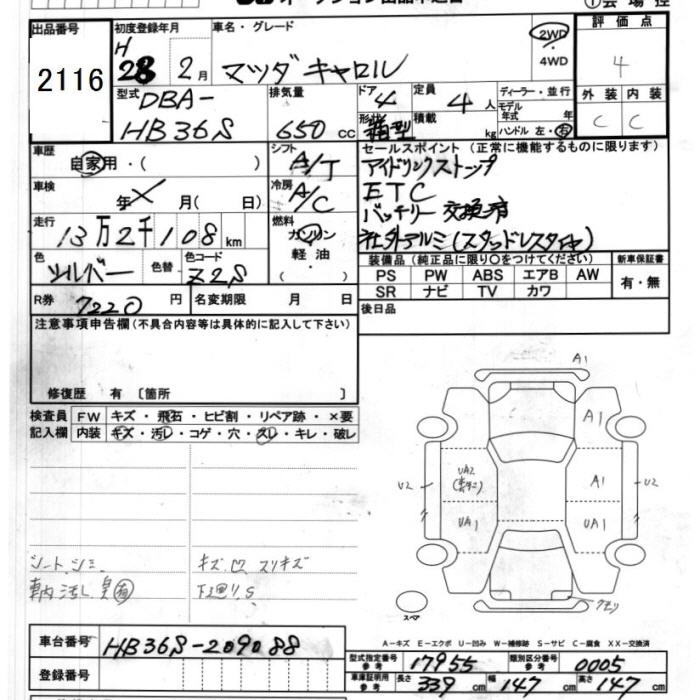 出品番号 初度登録年月 車名・グレード 2WD 4WD 評価点
2116 H 28 2月 マツダ キャロル 4
型式 DBA-HB36S 排気量 650cc ドア 4 定員 4人 ディーラー・並行
形状 箱型 積載 kg モデル年式 年 ハンドル 左・右
外装 内装
C C
車歴 自家用・( ) シフト A/T セールスポイント(正常に機能するものに限ります)
車検 年 月( 日) 冷房 A/C アイドリングストップ
ETC
バッテリー交換済
社外アルミ(スタッドレスタイヤ)
走行 13万2千108km 燃料 ガソリン・軽油・( )
色 シルバー 色替 色コード Z2S
装備品(純正品に限り○をつけてください) 新車保証書
PS PW ABS エアB AW 有・無
SR ナビ TV カワ
R券 7220円 名変期限 月 日 後日品
注意事項申告欄(不具合内容等は具体的に記入して下さい)
修復歴 有〔箇所 〕
検査員 FW キズ・飛石・ヒビ割・リペア跡・×要
記入欄 内装 キズ・汚レ・コゲ・穴・スレ・キレ・破レ
A1
A1
UA2 A1
U2 U2
UA1 UA1
シートシミ キズ凹スリキズ
車内汚レ臭有 下廻りS
スペア
車台番号 HB36S-209088
A-キズ E-エクボ U-凹み W-補修跡 S-サビ C-腐食 XX-交換済
登録番号 型式指定番号参考 17955 類別区分番号参考 0005
車庫証明用参考 長さ 339cm 幅 147cm 高さ 147cm